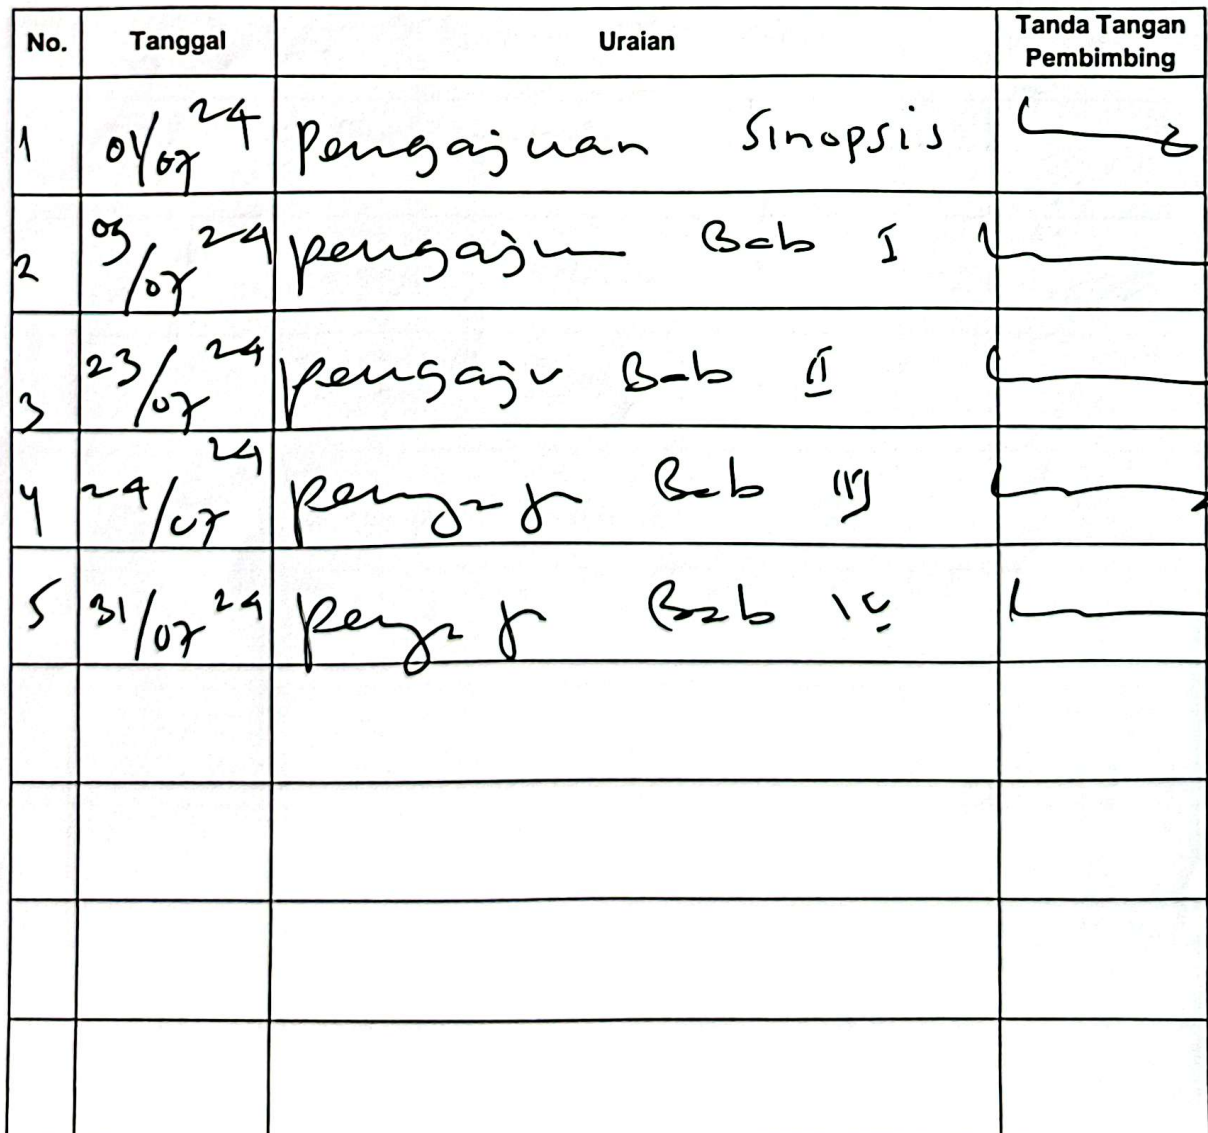 No. Tanggal Uraian Tanda Tangan Pembimbing
1 01/07 24 Pengajuan Sinopsis
2 /07 24 Bab I
3 23/07 24 pengaju Bab II
4 24/07 24 Bab III
5 31/07 24 Bab